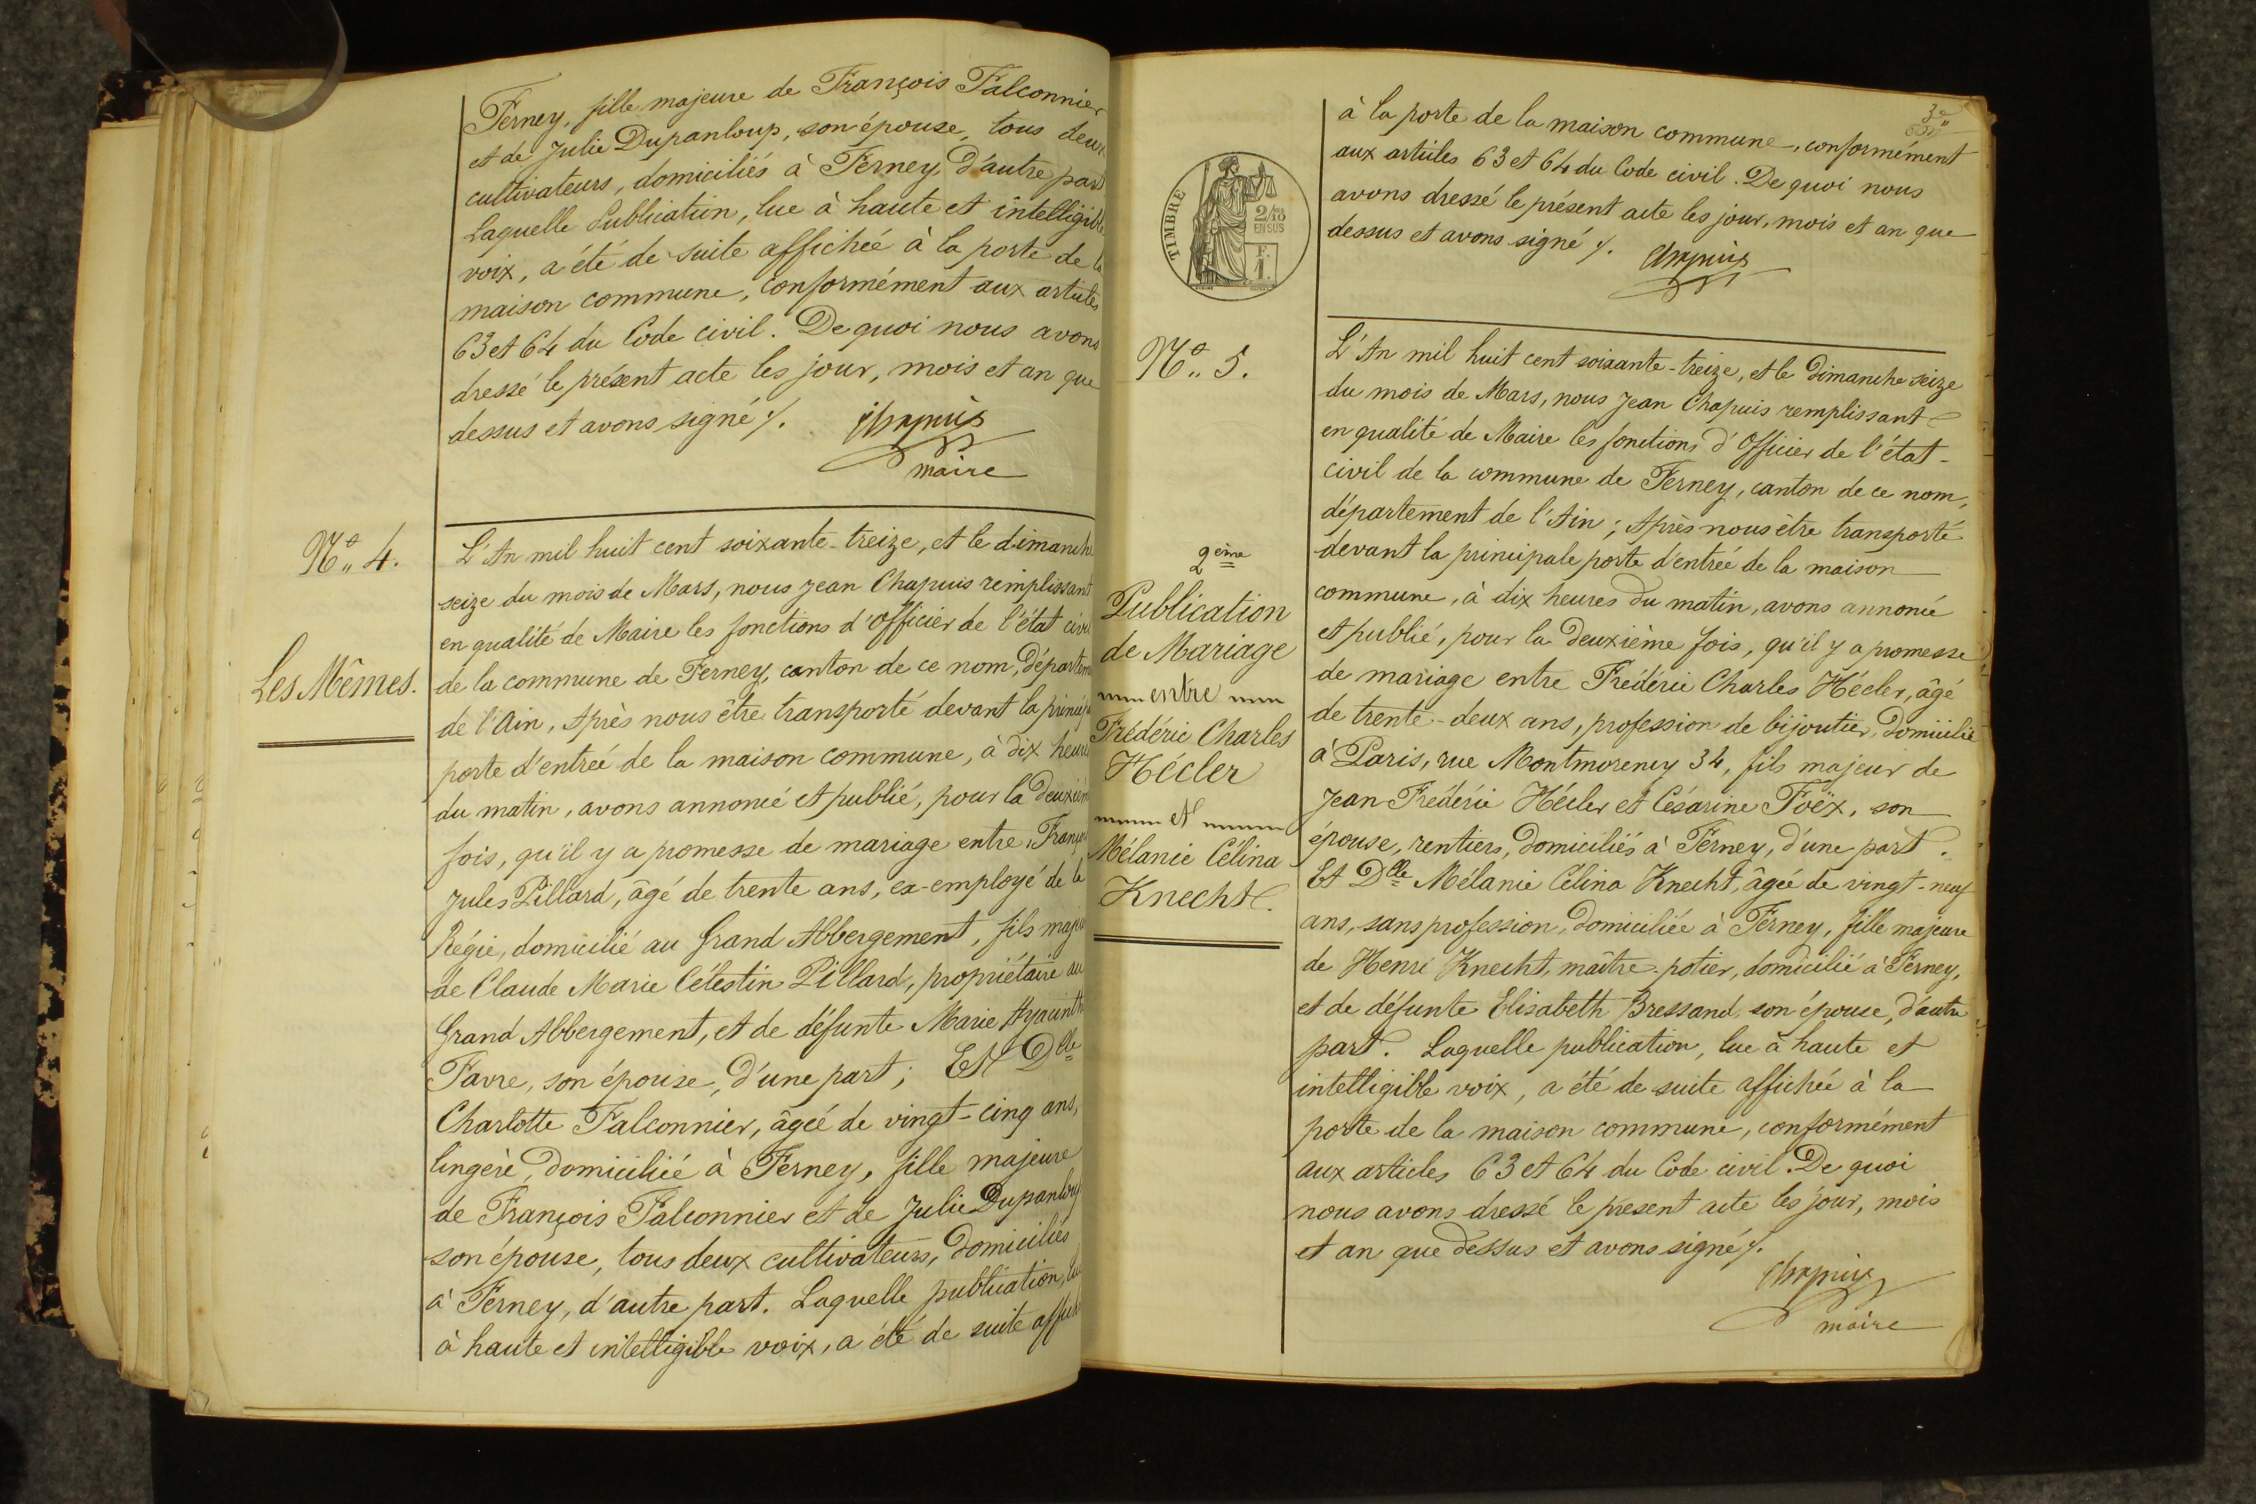 Ferney, fille majeure de François Falconnier
et de Julie Dupanloup, son épouse, tous deux
cultivateurs, domiciliés à Ferney, d'autre part
Laquelle Publication, lue à haute et intelligible
voix, a été de suite affichée à la porte de la
maison commune, conformément aux articles
63 et 64 du Code civil. De quoi nous avons
dressé le présent acte les jour, mois et an que
dessus et avons signé ./.
Chapuis
maire
No. 4.
Les Mêmes.
L'An mil huit cent soixante-treize, et le dimanche
seize du mois de Mars, nous Jean Chapuis remplissant
en qualité de Maire les fonctions d'Officier de l'état civil
de la commune de Ferney, canton de ce nom, départem
de l'Ain, Après nous être transporté devant la princip
porte d'entrée de la maison commune, à dix heures
du matin, avons annoncé et publié, pour la deuxièm
fois, qu'il y a promesse de mariage entre Franço
Jules Pillard, âgé de trente ans, ex-employé de la
Régie, domicilié au Grand Abbergement, fils majeu
de Claude Marie Célestin Pillard, propriétaire au
Grand Abbergement, et de défunte Marie Hyacinthe
Favre, son épouse, d'une part; Et Dlle
Charlotte Falconnier, âgée de vingt-cinq ans,
lingère, domiciliée à Ferney, fille majeure
de François Falconnier et de Julie Dupanloup
son épouse, tous deux cultivateurs, domiciliés
à Ferney, d'autre part. Laquelle publication, lue
à haute et intelligible voix, a été de suite affich
3e
à la porte de la maison commune, conformément
aux articles 63 et 64 du Code civil. De quoi nous
avons dressé le présent acte les jour, mois et an que
dessus et avons signé ./.
Chapuis
TIMBRE
2/10
EN SUS
F.
1.
No. 5.
2ème
Publication
de Mariage
entre
Frédéric Charles
Hécler
et
Mélanie Célina
Knecht.
L'An mil huit cent soixante-treize, et le Dimanche seize
du mois de Mars, nous Jean Chapuis remplissant
en qualité de Maire les fonctions d'Officier de l'état-
civil de la commune de Ferney, canton de ce nom,
département de l'Ain; Après nous être transporté
devant la principale porte d'entrée de la maison
commune, à dix heures du matin, avons annoncé
et publié, pour la deuxième fois, qu'il y a promesse
de mariage entre Frédéric Charles Hécler, âgé
de trente-deux ans, profession de bijoutier, domicilié
à Paris, rue Montmorency 34, fils majeur de
Jean Frédéric Hécler et Césarine Foëx, son
épouse, rentiers, domiciliés à Ferney, d'une part.
Et Dlle Mélanie Célina Knecht, âgée de vingt-neuf
ans, sans profession, domiciliée à Ferney, fille majeure
de Henri Knecht, maître-potier, domicilié à Ferney,
et de défunte Elisabeth Bressand, son épouse, d'autre
part. Laquelle publication, lue à haute et
intelligible voix, a été de suite affichée à la
porte de la maison commune, conformément
aux articles 63 et 64 du Code civil. De quoi
nous avons dressé le présent acte les jour, mois
et an que dessus et avons signé ./.
Chapuis
maire